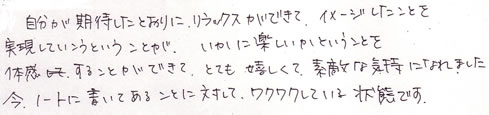 自分が期待したとおりに、リラックスができて、イメージしたことを
実現していくということが、いかに楽しいかということを
体感することができて、とても嬉しくて、素敵な気持になれました
今、ノートに書いてあることに対して、ワクワクしている状態です。